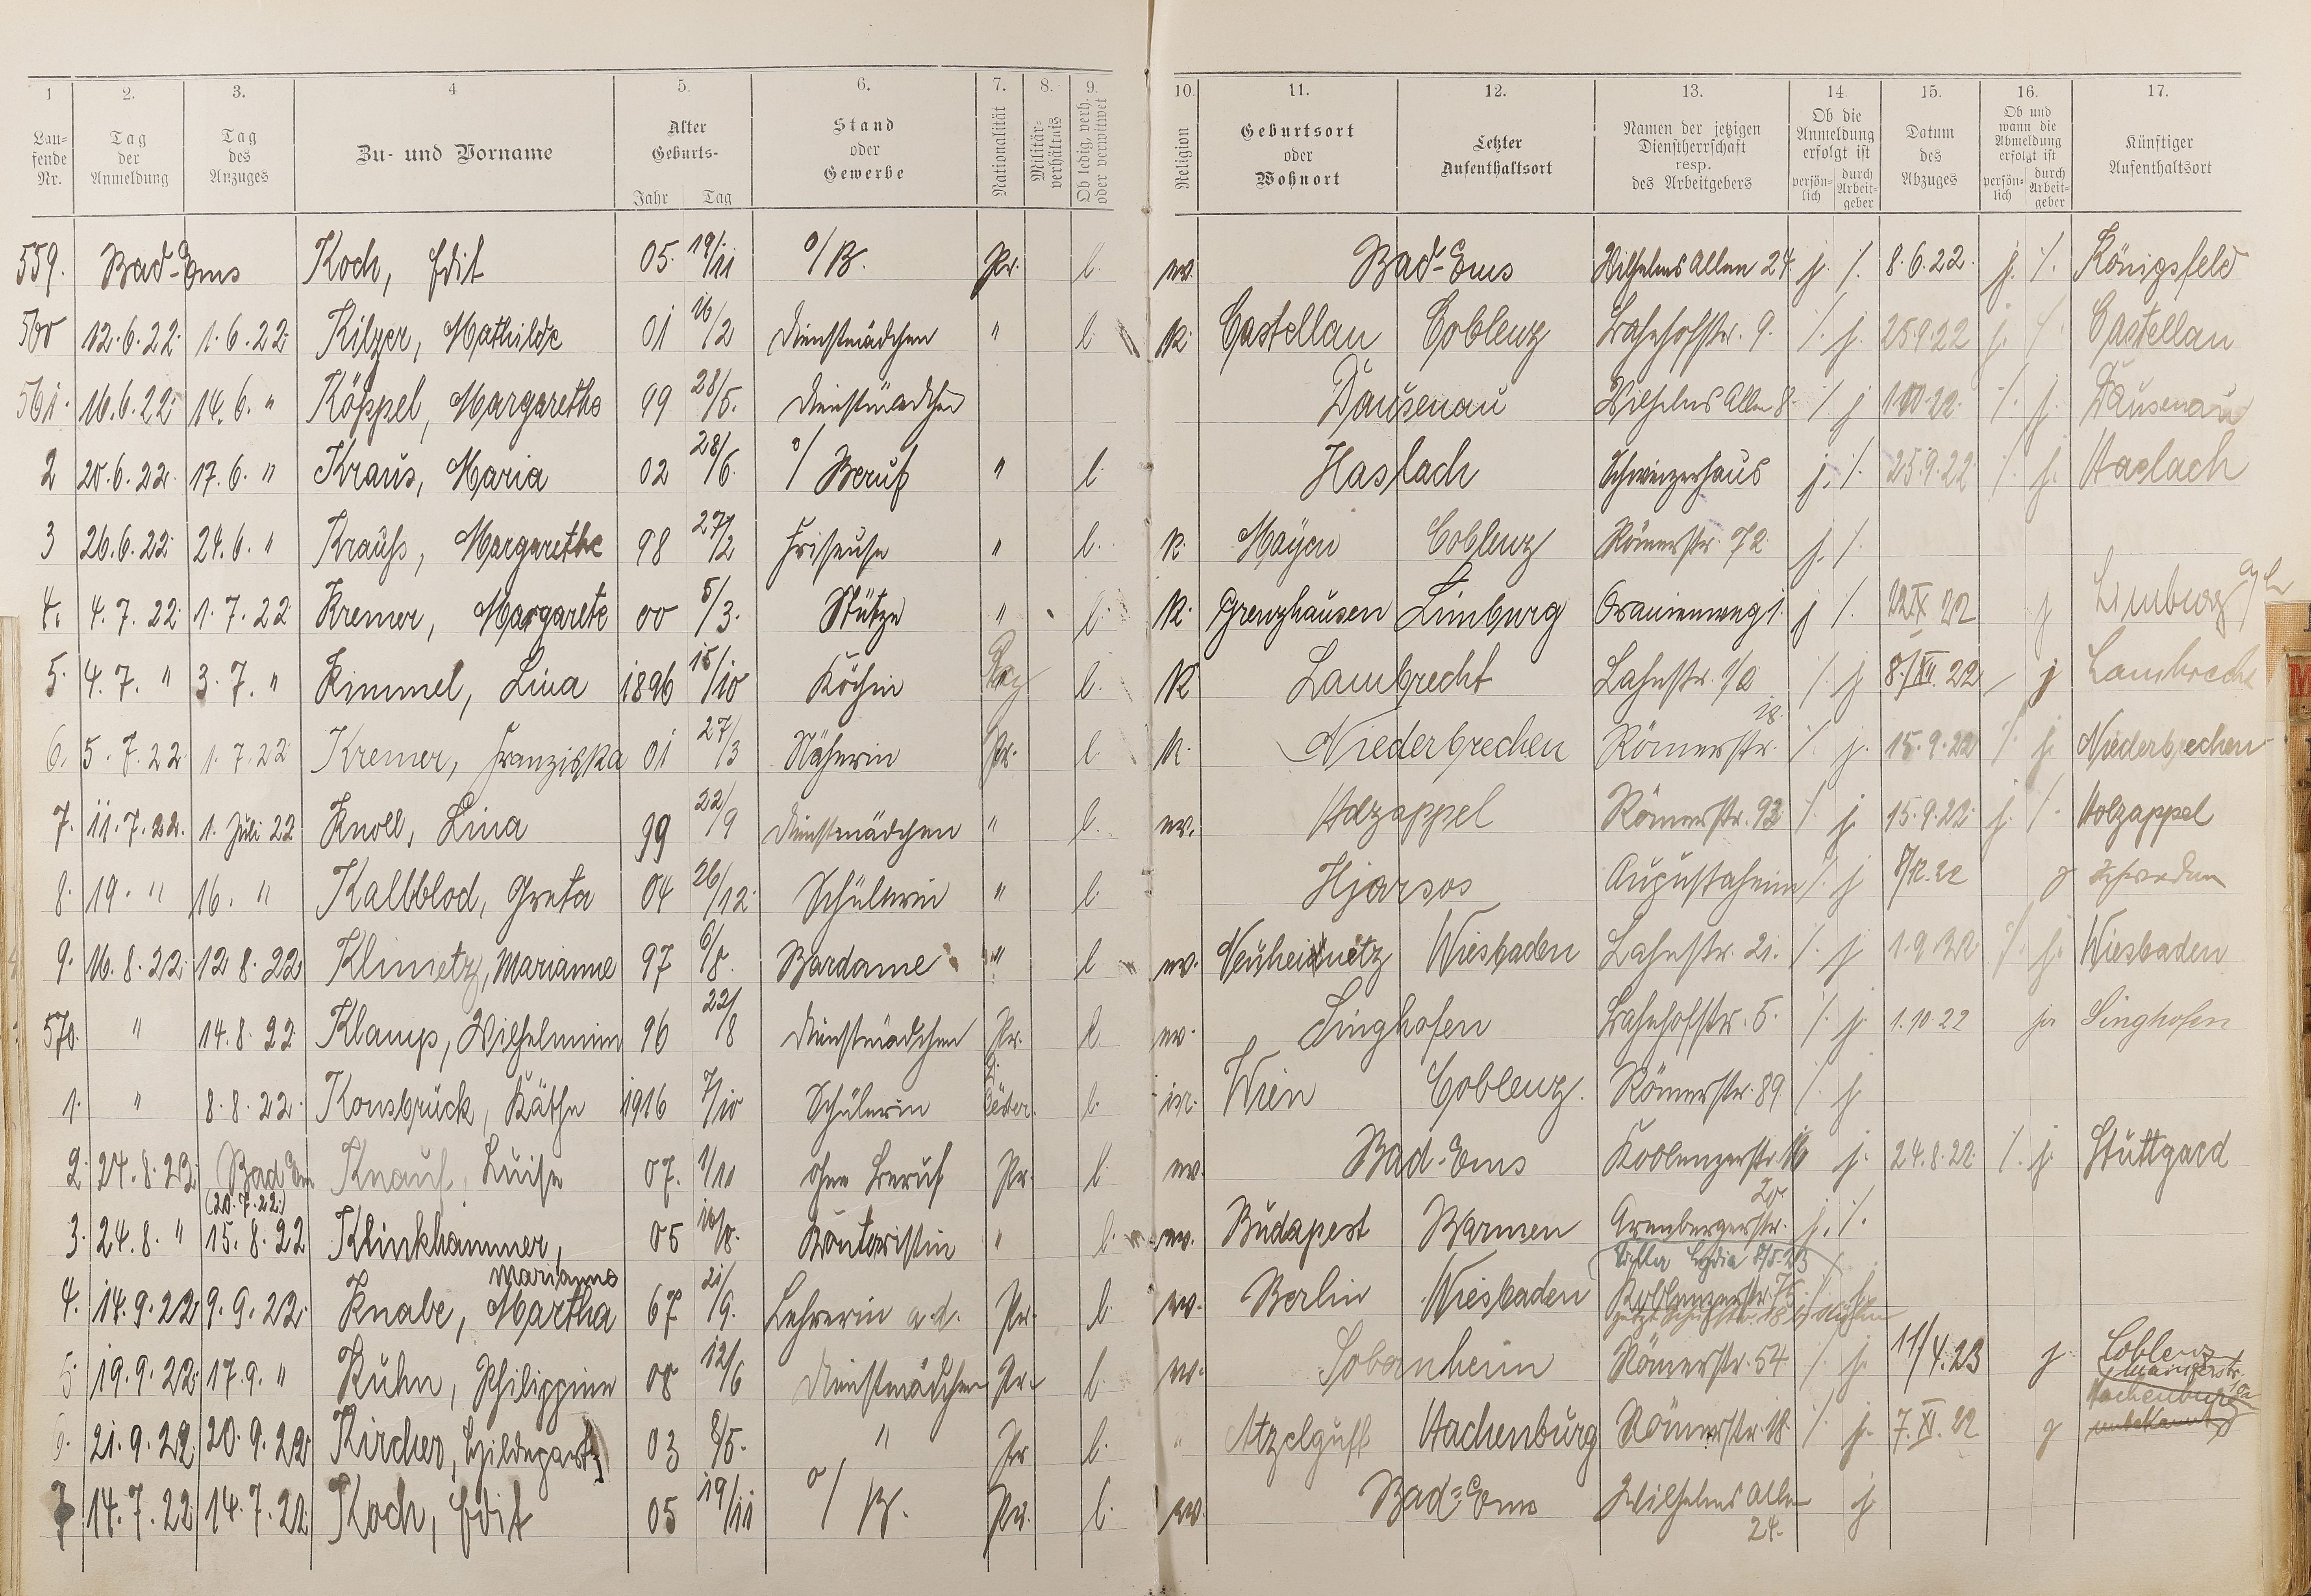 1 2. 3. 4 5. 6. 7. 8. 9. 10. 11. 12. 13. 14. 15. 16. 17.
Lau-fende Nr. Tag der Anmeldung Tag des Anzuges Zu- und Vorname Alter Geburts- Jahr Tag Stand oder Gewerbe Nationalität Militär-verhältnis Ob ledig, verh. oder verwitwet Religion Geburtsort oder Wohnort Letzter Aufenthaltsort Namen der jetzigen Dienstherrschaft resp. des Arbeitgebers Ob die Anmeldung erfolgt ist persön-lich durch Arbeit-geber Datum des Abzuges Ob und wann die Abmeldung erfolgt ist persön-lich durch Arbeit-geber Künftiger Aufenthaltsort
559. Bad-Ems Koch, Edit 05. 19/11 o/B. Pr. l. ev. Bad-Ems Wilhelms Allee 24 j. /. 8.6.22. j. /. Königsfeld
560 12.6.22. 1.6.22. Kilzer, Mathilde 01 16/2 Dienstmädchen " l. K. Castellau Coblenz Bahnhofstr. 9. /. j. 25.9.22 j. /. Castellau
561. 16.6.22. 14.6. " Köppel, Margarethe 99 28/5. Dienstmädchen Dausenau Wilhelms Allee 8. /. j /. j. Dausenau
2 20.6.22. 17.6. " Kraus, Maria 02 28/6. o/ Beruf " l. Haslach Schweizerhaus j. /. 25.9.22 /. j. Haslach
3 26.6.22. 24.6. " Krauss, Margarethe 98 27/2 Friseuse " l. K. Mayen Coblenz Römerstr. 72 j. /.
4. 4.7.22. 1.7.22 Kremer, Margarete 00 5/3. Stütze " l. K. Grenzhausen Limburg Oranienweg 1. j /. 22 IX 22 j Limburg
5. 4.7. " 3.7. " Kimmel, Lina 1896 15/10 Köchin Bay l. K Lambrecht Lahnstr. /. j 8./XII.22 / j Lambrecht
6. 5.7.22 1.7.22 Kremer, Franziska 01 27/3 Näherin Pr. l. K. Niederbrechen Römerstr. 18. /. j. 15.9.22 /. j. Niederbrechen
7. 11.7.22. 1. Juli 22 Knoll, Lina 99 22/9 Dienstmädchen " l. ev. Holzappel Römerstr. 93 /. j. 15.9.22. j. /. Holzappel
8. 19. " 16. " Kalbblod, Greta 04 26/12. Schülerin " l. Hjarsos Augustaheim /. j 8/12.22 j Schweden
9. 16.8.22. 12.8.22 Klimetz, Marianne 97 6/8. Bardame " l ev. Wiesbaden Lahnstr. 21. /. j 1.9.22 /. j. Wiesbaden
570. " 14.8.22 Klamp, Wilhelmine 96 22/8 Dienstmädchen Pr. l ev. Singhofen Bahnhofstr. 5. /. j. 1.10.22 ja Singhofen
1. " 8.8.22. Konsbrück, Käthe 1916 7/10 Schülerin l. isr. Wien Coblenz. Römerstr. 89 /. j
2. 24.8.22. Bad Em Knauf, Luise 07. 1/11 ohne Beruf Pr. l. ev. Bad-Ems Koblenzerstr. j. 24.8.22. /. j. Stuttgard
(20.7.22.)
3. 24.8. " 15.8.22 Klinkhammer, Marianne 05 10/8. Kontoristin " l. ev. Budapest Barmen Arenbergerstr. 20. j. /.
Villa Lydia
4. 14.9.22 9.9.22. Knabe, Martha 67 21/9. Lehrerin a.d. Pr. l. ev. Berlin Wiesbaden Koblenzerstr. /. j.
5. 19.9.22. 17.9. " Kuhn, Philippine 08 12/6 Dienstmädchen Pr. l. ev. Sobernheim Römerstr. 54 /. j. 11/4.23 j Coblenz Mainzerstr.
6. 21.9.22. 20.9.22 Kircher, Hildegard 03 8/5. " Pr l. " Atzelgift Hachenburg Römerstr. 18. /. j. 7.XI.22 j Hachenburg unbekannt
7 14.7.22. 14.7.22. Koch, Edit 05 19/11 o/B. Pr. l. ev. Bad-Ems Wilhelms Allee 24. j